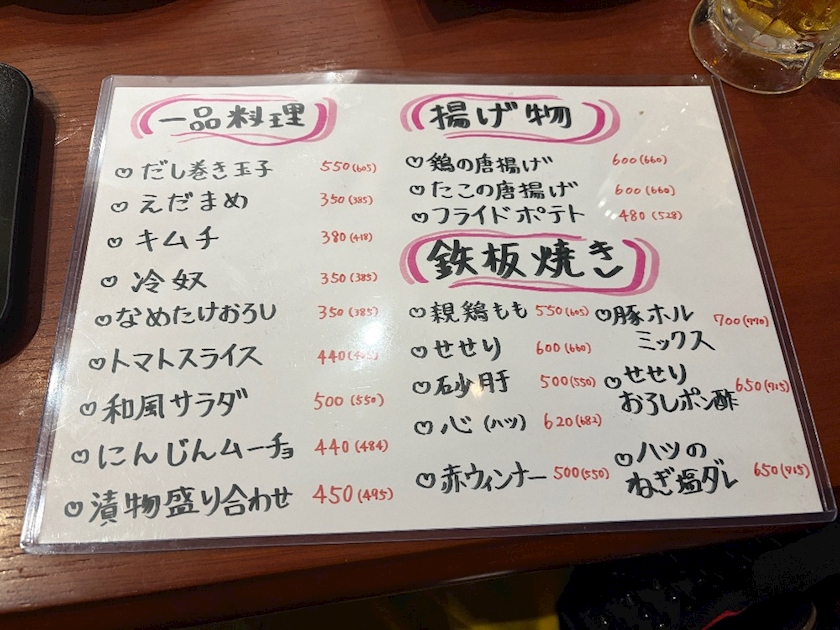 一品料理
♡だし巻き玉子 550(605)
♡えだまめ 350(385)
♡キムチ 380(418)
♡冷奴 350(385)
♡なめたけおろし 350(385)
♡トマトスライス 440
♡和風サラダ 500(550)
♡にんじんムーチョ 440(484)
♡漬物盛り合わせ 450(495)
揚げ物
♡鶏の唐揚げ 600(660)
♡たこの唐揚げ 600(660)
♡フライドポテト 480(528)
鉄板焼き
♡親鶏もも 550(605)
♡せせり 600(660)
♡砂肝 500(550)
♡心(ハツ) 620(682)
♡赤ウィンナー 500(550)
♡豚ホル
ミックス 700(770)
♡せせり
おろしポン酢 650(715)
♡ハツの
ねぎ塩ダレ 650(715)